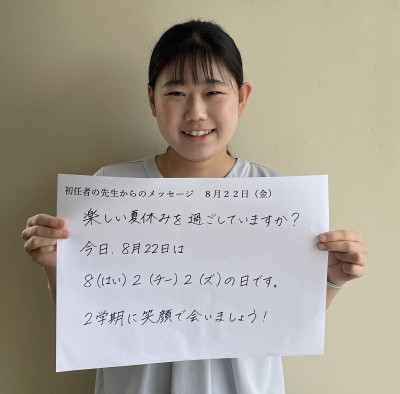 初任者の先生からのメッセージ　８月２２日（金）
楽しい夏休みを過ごしていますか？
今日、8月22日は
8(はい) 2 (チー) 2 (ズ) の日です。
2学期に笑顔で会いましょう！